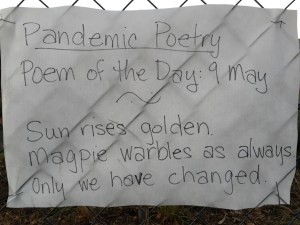 Pandemic Poetry
Poem of the Day: 9 May
Sun rises golden.
Magpie warbles as always.
Only we have changed.